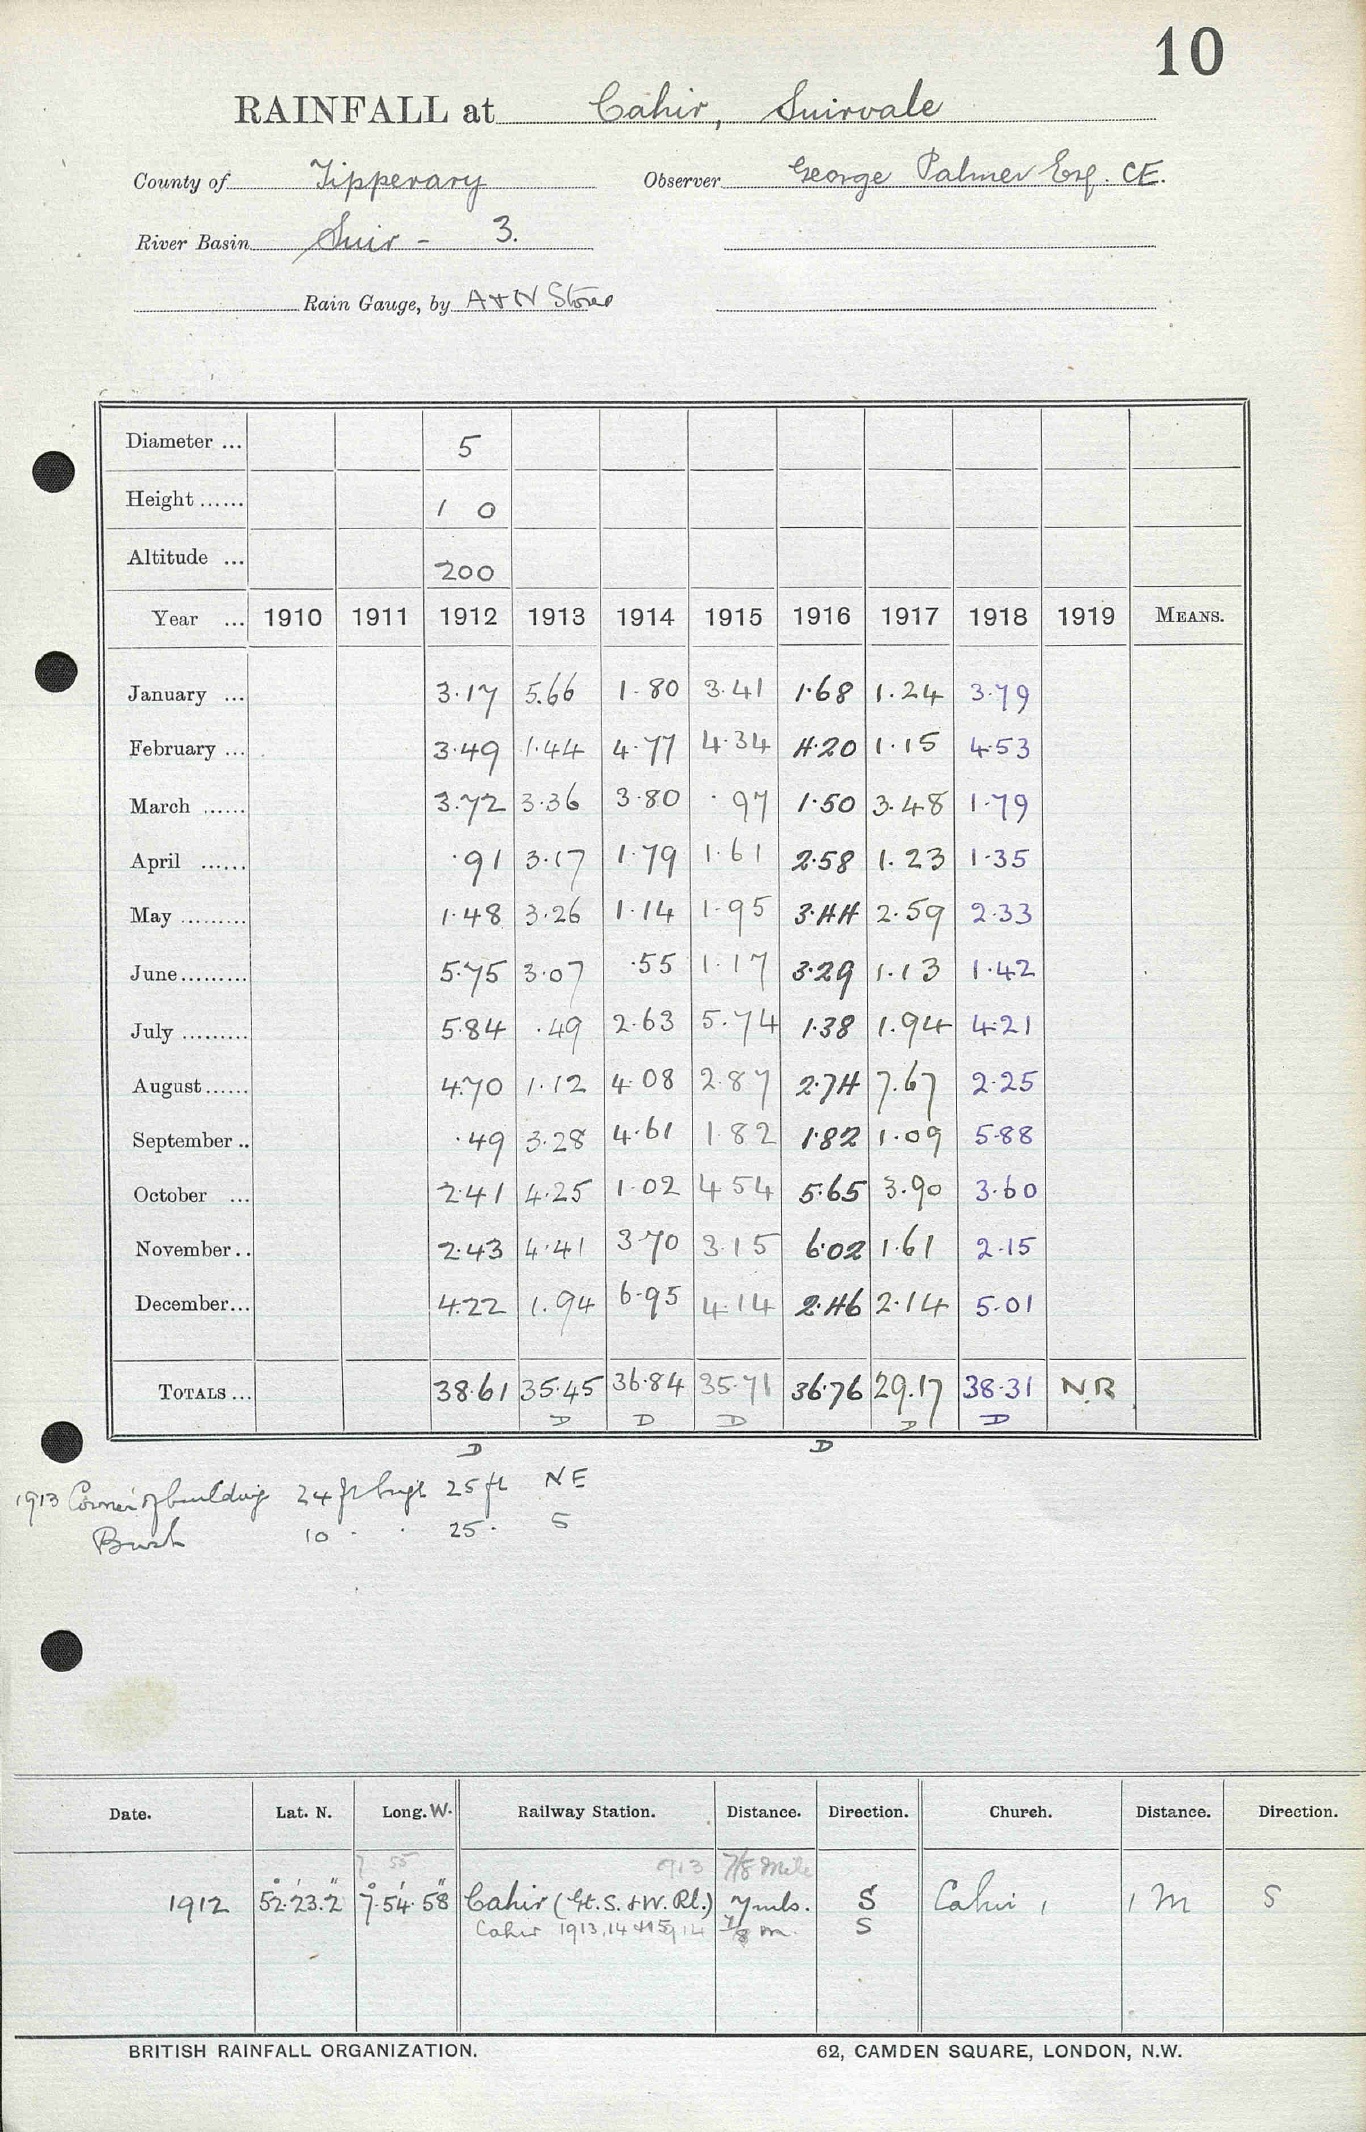 10
RAINFALL at Cahir, Suirvale
County of Tipperary Observer George Palmer Esq. CE.
River Basin Suir - 3.
Rain Gauge, by A & N Stores
Diameter ... 5
Height ...... 1 0
Altitude ... 200
Year ... 1910 1911 1912 1913 1914 1915 1916 1917 1918 1919 MEANS.
January ... 3.17 5.66 1.80 3.41 1.68 1.24 3.79
February ... 3.49 1.44 4.77 4.34 4.20 1.15 4.53
March ...... 3.72 3.36 3.80 .97 1.50 3.48 1.79
April ...... .91 3.17 1.79 1.61 2.58 1.23 1.35
May ......... 1.48 3.26 1.14 1.95 3.44 2.59 2.33
June ......... 5.75 3.07 .55 1.17 3.29 1.13 1.42
July ......... 5.84 .49 2.63 5.74 1.38 1.94 4.21
August ...... 4.70 1.12 4.08 2.87 2.74 7.67 2.25
September .. .49 3.28 4.61 1.82 1.82 1.09 5.88
October ... 2.41 4.25 1.02 4.54 5.65 3.90 3.60
November .. 2.43 4.41 3.70 3.15 6.02 1.61 2.15
December ... 4.22 1.94 6.95 4.14 2.46 2.14 5.01
TOTALS ... 38.61 35.45 36.84 35.71 36.76 29.17 38.31 NR
D D D D D
D D
1913 Corner of building 24 ft high 25 ft NE
Bush 10 . . 25 . S
Date. Lat. N. Long. W. Railway Station. Distance. Direction. Church. Distance. Direction.
7 55 913 7/8 mile
1912 52° 23' 2" 7° 54' 58" Cahir (Gt. S. & W. Rl.) 7 mls. S Cahir, 1 M S
Cahir 1913, 14 7/8 m. S
BRITISH RAINFALL ORGANIZATION. 62, CAMDEN SQUARE, LONDON, N.W.